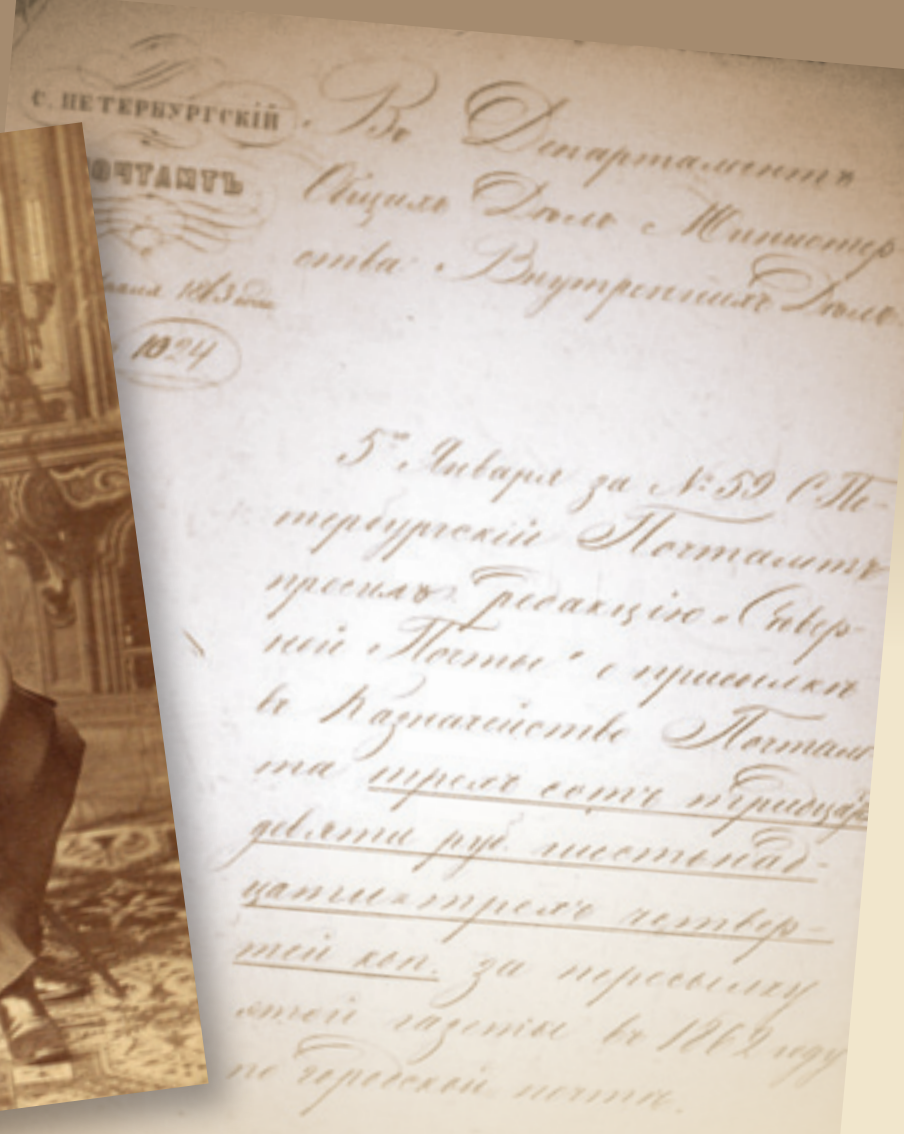 С. ПЕТЕРБУРГСКІЙ
ПОЧТАМТЪ
1863 года
1024
Въ Департаментъ
Общихъ Дѣлъ Министер
ства Внутреннихъ Дѣлъ.
5го Января за №: 59 С. Пе-
тербургскій Почтамтъ
просилъ редакцію „Сѣвер-
ной Почты" о присылкѣ
въ Казначейство Почтам
та трехъ сотъ тридца
девяти руб. шестьнад-
цати и трехъ четвер-
тей коп. за пересылку
этой газеты въ 1862 году
по городской почтѣ.